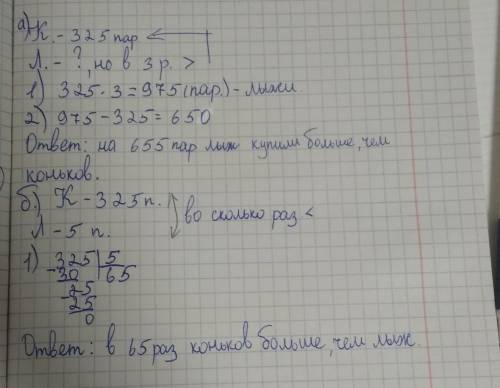 а)
К. - 325 пар
Л. - ?, но в 3 р. >
1) 325 · 3 = 975 (пар.) - лыжи
2) 975 - 325 = 650
Ответ: на 655 пар лыж купили больше, чем
коньков.
б.) К - 325 п.
Л - 5 п.
во сколько раз <
1) 325 | 5
- 30 65
25
- 25
0
Ответ: в 65 раз коньков больше, чем лыж.